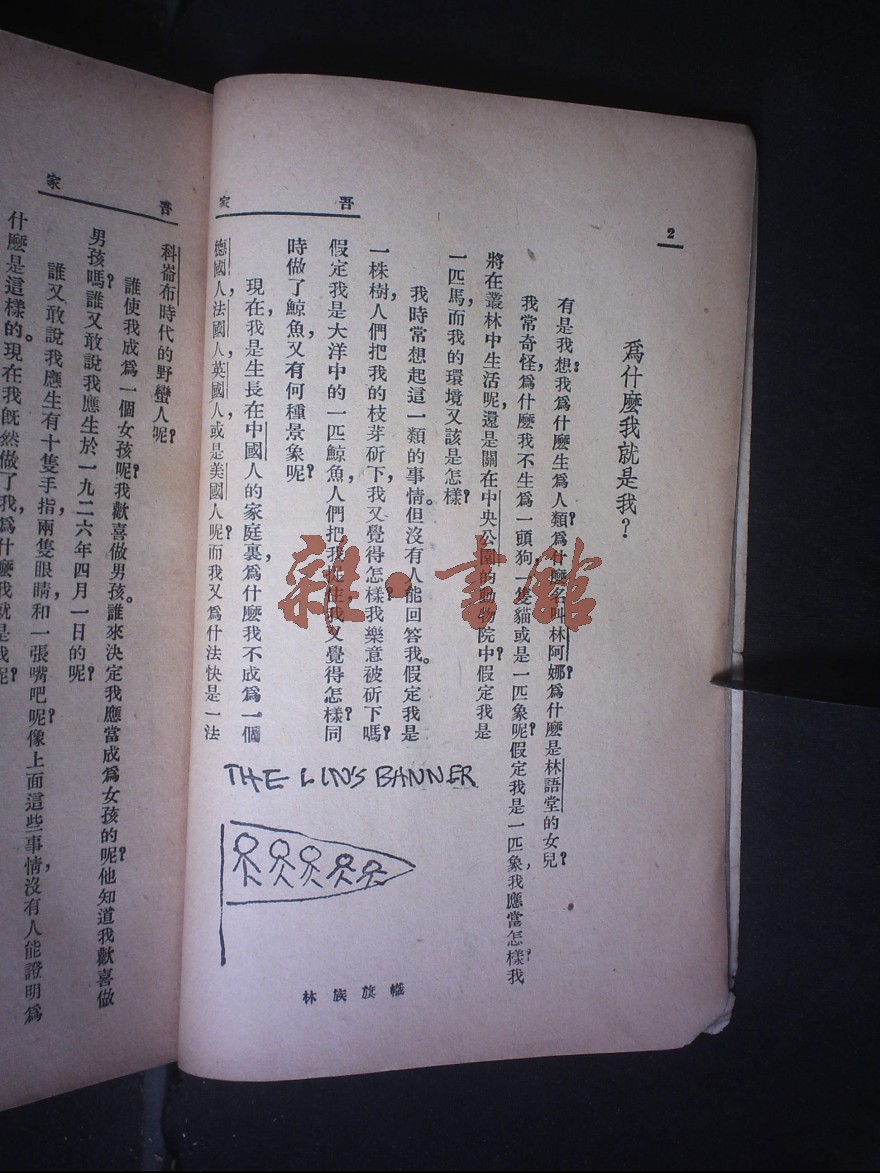 2
爲什麼我就是我?
有是我想,我爲什麼生爲人類?爲什麼名叫林阿娜?爲什麼是林語堂的女兒?
我常奇怪,爲什麼我不生爲一頭狗一隻貓或是一匹象呢?假定我是一匹象,我應當怎樣?我
將在叢林中生活呢,還是關在中央公園的動物院中?假定我是
一匹馬,而我的環境又該是怎樣?
我時常想起這一類的事情。但沒有人能回答我。假定我是
一株樹,人們把我的枝芽斫下,我又覺得怎樣?我樂意被斫下嗎?
假定我是大洋中的一匹鯨魚,人們把我捉住,我又覺得怎樣?同
時做了鯨魚,又有何種景象呢?
現在,我是生長在中國人的家庭裏,爲什麼我不成爲一個
德國人,法國人,英國人,或是美國人呢?而我又爲什法快是一法
吾家
THE LIN'S BANNER
林族旗幟
雜·書館
吾家
科崙布時代的野蠻人呢?
誰使我成爲一個女孩呢?我歡喜做男孩。誰來決定我應當成爲女孩的呢?他知道我歡喜做
男孩嗎?誰又敢說我應生於一九二六年四月一日的呢?
誰又敢說我應生有十隻手指,兩隻眼睛和一張嘴吧呢?像上面這些事情,沒有人能證明爲
什麼是這樣的。現在我旣然做了我,爲什麼我就是我呢?